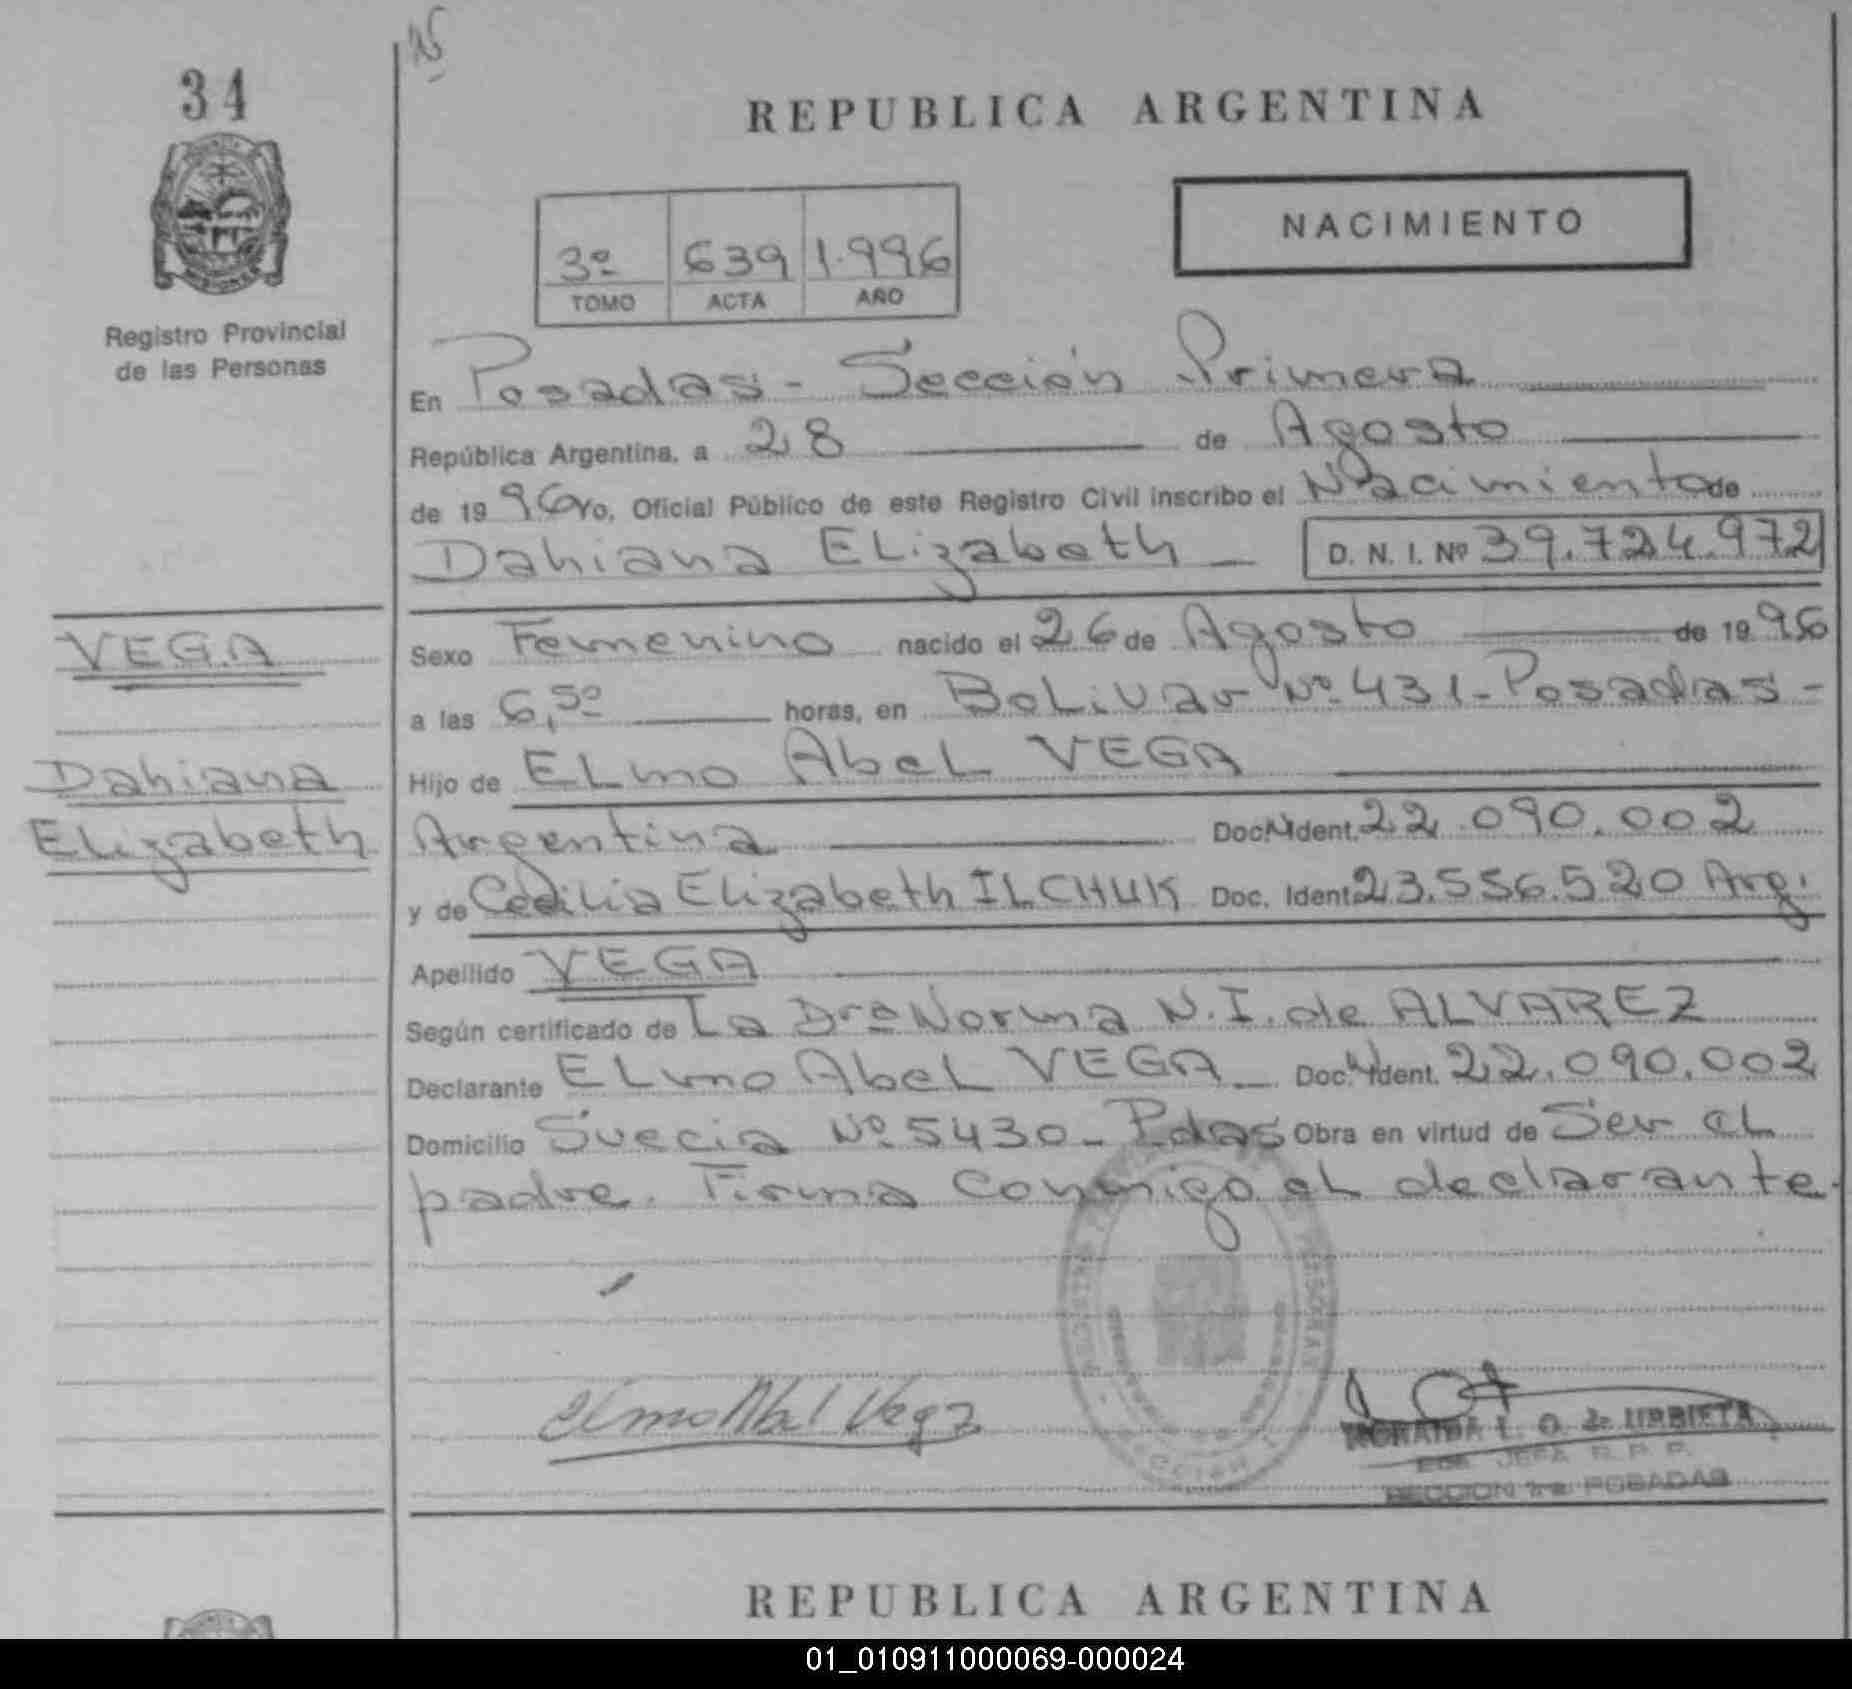 34
REPUBLICA ARGENTINA
NACIMIENTO
3º 639 1.996
TOMO ACTA AÑO
Registro Provincial
de las Personas
En Posadas - Sección Primera
República Argentina, a 28 de Agosto
de 1996 Yo, Oficial Público de este Registro Civil inscribo el Nacimiento de
Dahiana Elizabeth D. N. I. Nº 39.724.972
VEGA
Dahiana
Elizabeth
Sexo Femenino nacido el 26 de Agosto de 1996
a las 6,50 horas, en Bolivar Nº 431 - Posadas -
Hijo de Elmo Abel VEGA
Argentina Doc. N Ident. 22.090.002
y de Cecilia Elizabeth ILCHUK Doc. Ident. 23.556.520 Arg.
Apellido VEGA
Según certificado de La Dra Norma N. I. de ALVAREZ
Declarante Elmo Abel VEGA Doc. N Ident. 22.090.002
Domicilio Suecia Nº 5430 - Pdas Obra en virtud de Ser el
padre. Firma conmigo el declarante.
Elmo Abel Vega
L. O. de URBIETA
JEFA R. P. P.
SECCION 1ra. POSADAS
REPUBLICA ARGENTINA
01_010911000069-000024